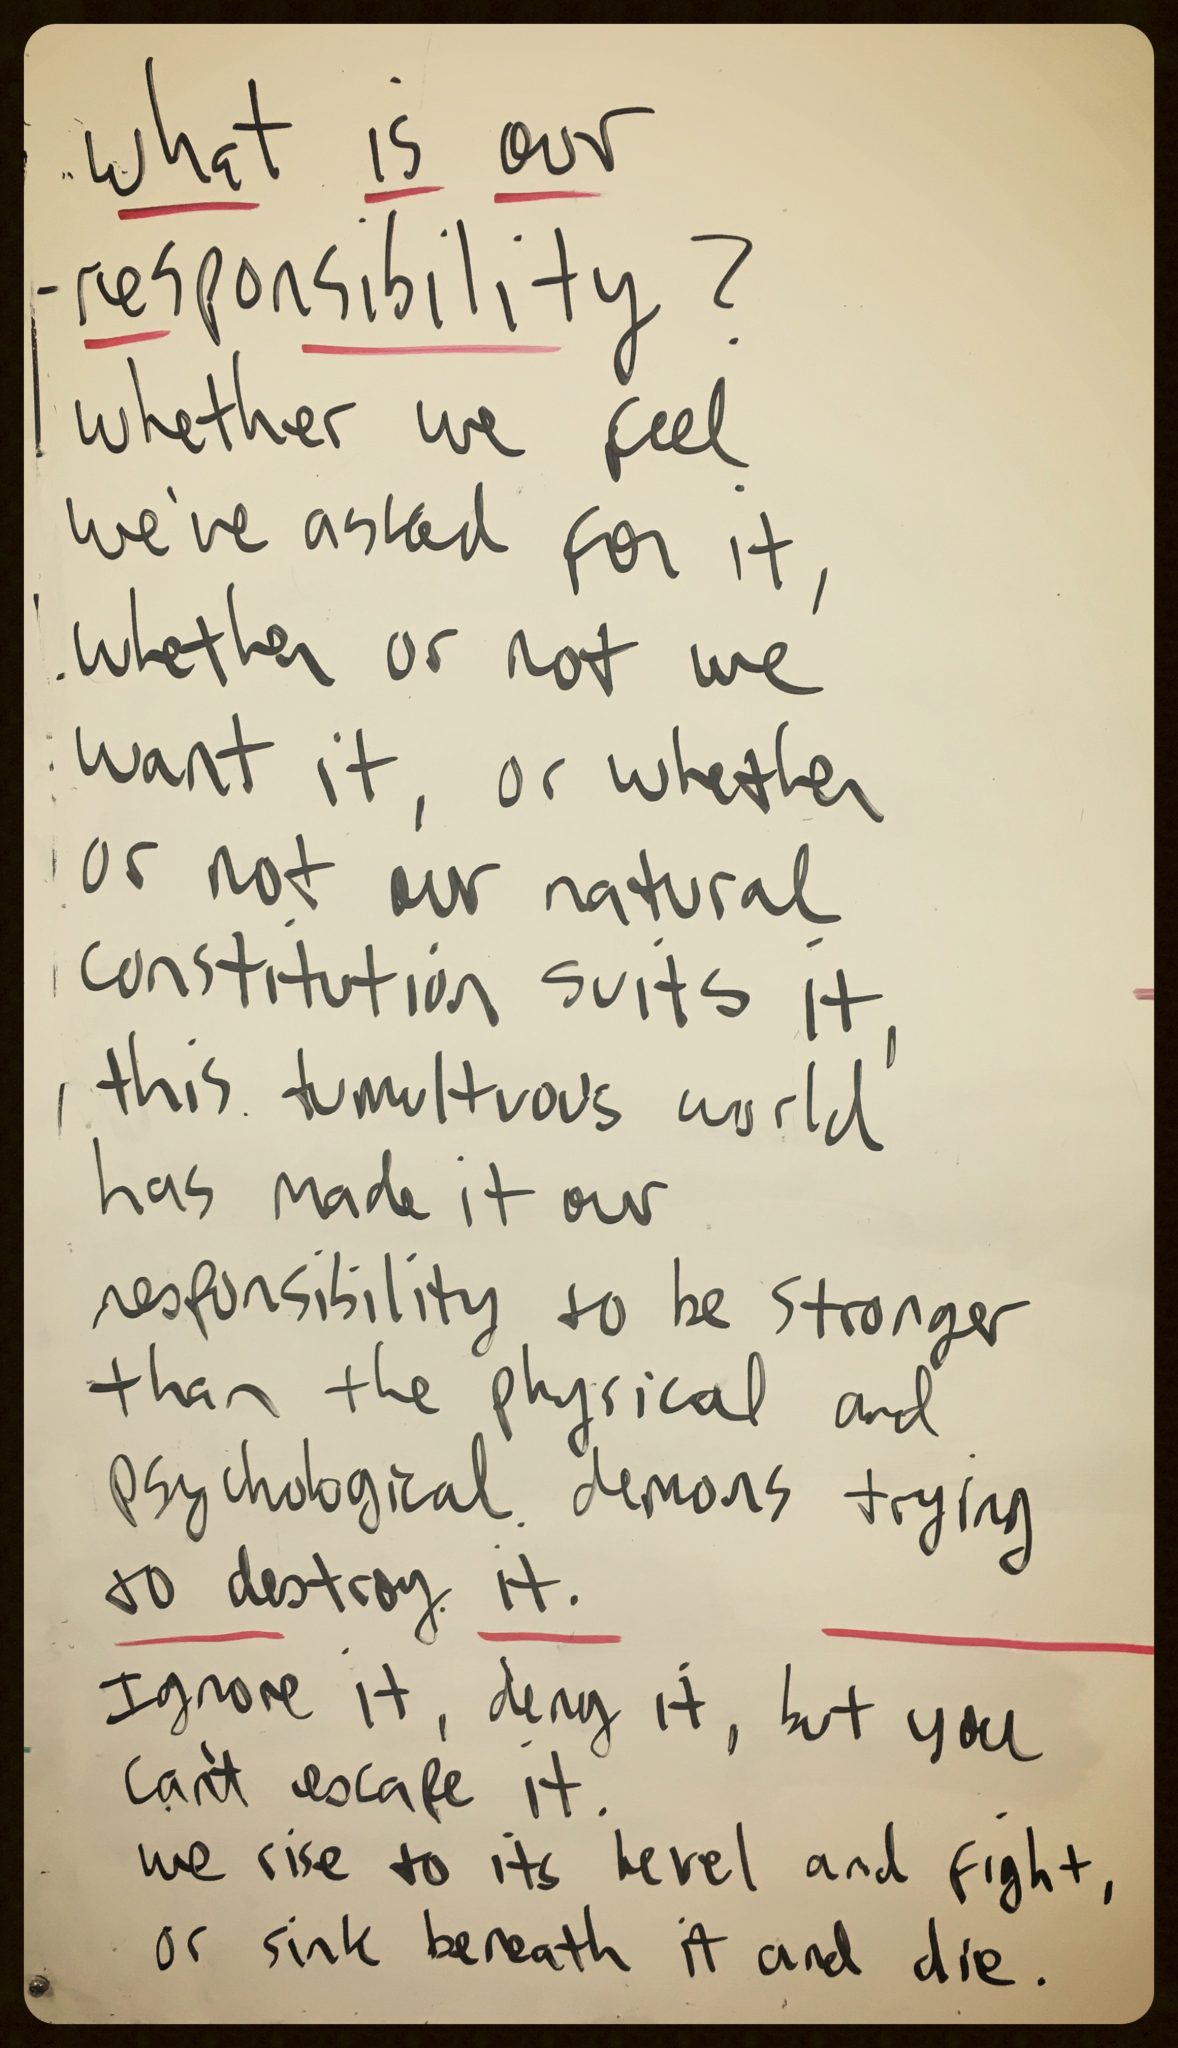 what is our
responsibility?
whether we feel
we've asked for it,
whether or not we
want it, or whether
or not our natural
constitution suits it,
this tumultuous world
has made it our
responsibility to be stronger
than the physical and
psychological demons trying
to destroy it.
Ignore it, deny it, but you
can't escape it.
we rise to its level and fight,
or sink beneath it and die.